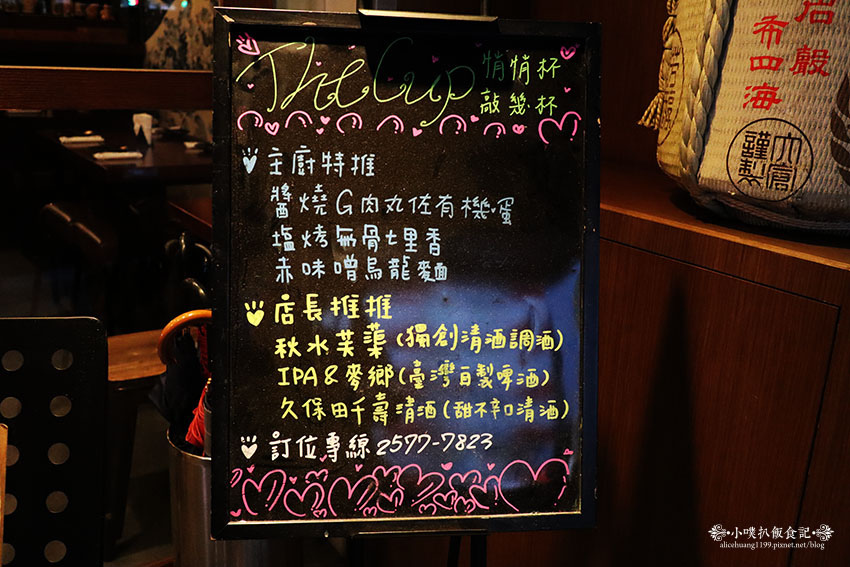 The Cup
悄悄杯
敲幾杯
主廚特推
醬燒G肉丸佐有機蛋
塩烤無骨七里香
赤味噌烏龍麵
店長推推
秋水芙蕖(獨創清酒調酒)
IPA & 麥鄉(臺灣自製啤酒)
久保田千壽清酒(甜不辛口清酒)
訂位專線 2577-7823
岩穀
布四海
謹製
大倉
小噗扒飯食記
alicehuang1199.pixnet.net/blog